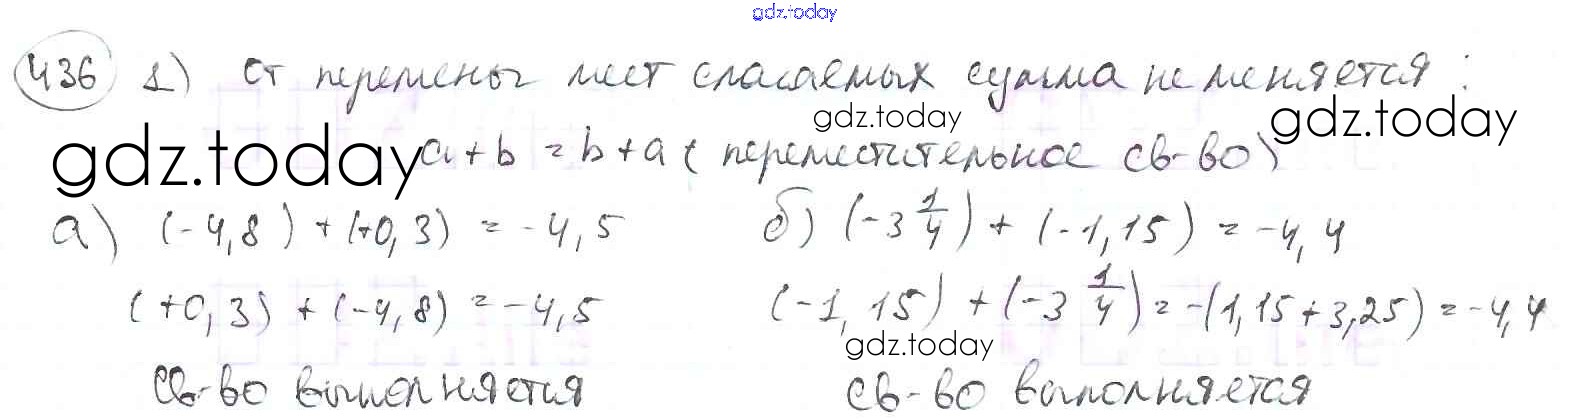 gdz.today
436 1) От перемены мест слагаемых сумма не меняется:
gdz.today gdz.today
gdz.today a+b=b+a (переместительное св-во)
а) (-4,8)+(+0,3) = -4,5 б) (-3 1/4)+(-1,15) = -4,4
(+0,3)+(-4,8) = -4,5 (-1,15)+(-3 1/4) = -(1,15+3,25) = -4,4
gdz.today
св-во выполняется св-во выполняется